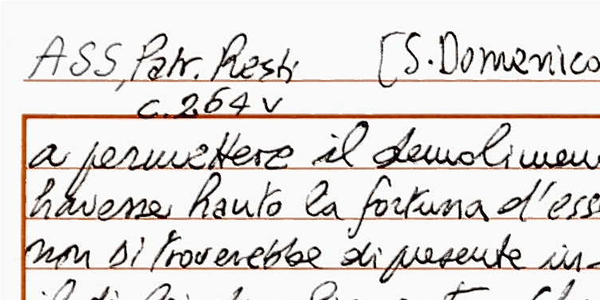 ASS, Patr. Resti [S. Domenico
c. 264 v
a permettere il demolimen
havesse hauto la fortuna d'ess
non si troverebbe di presente in